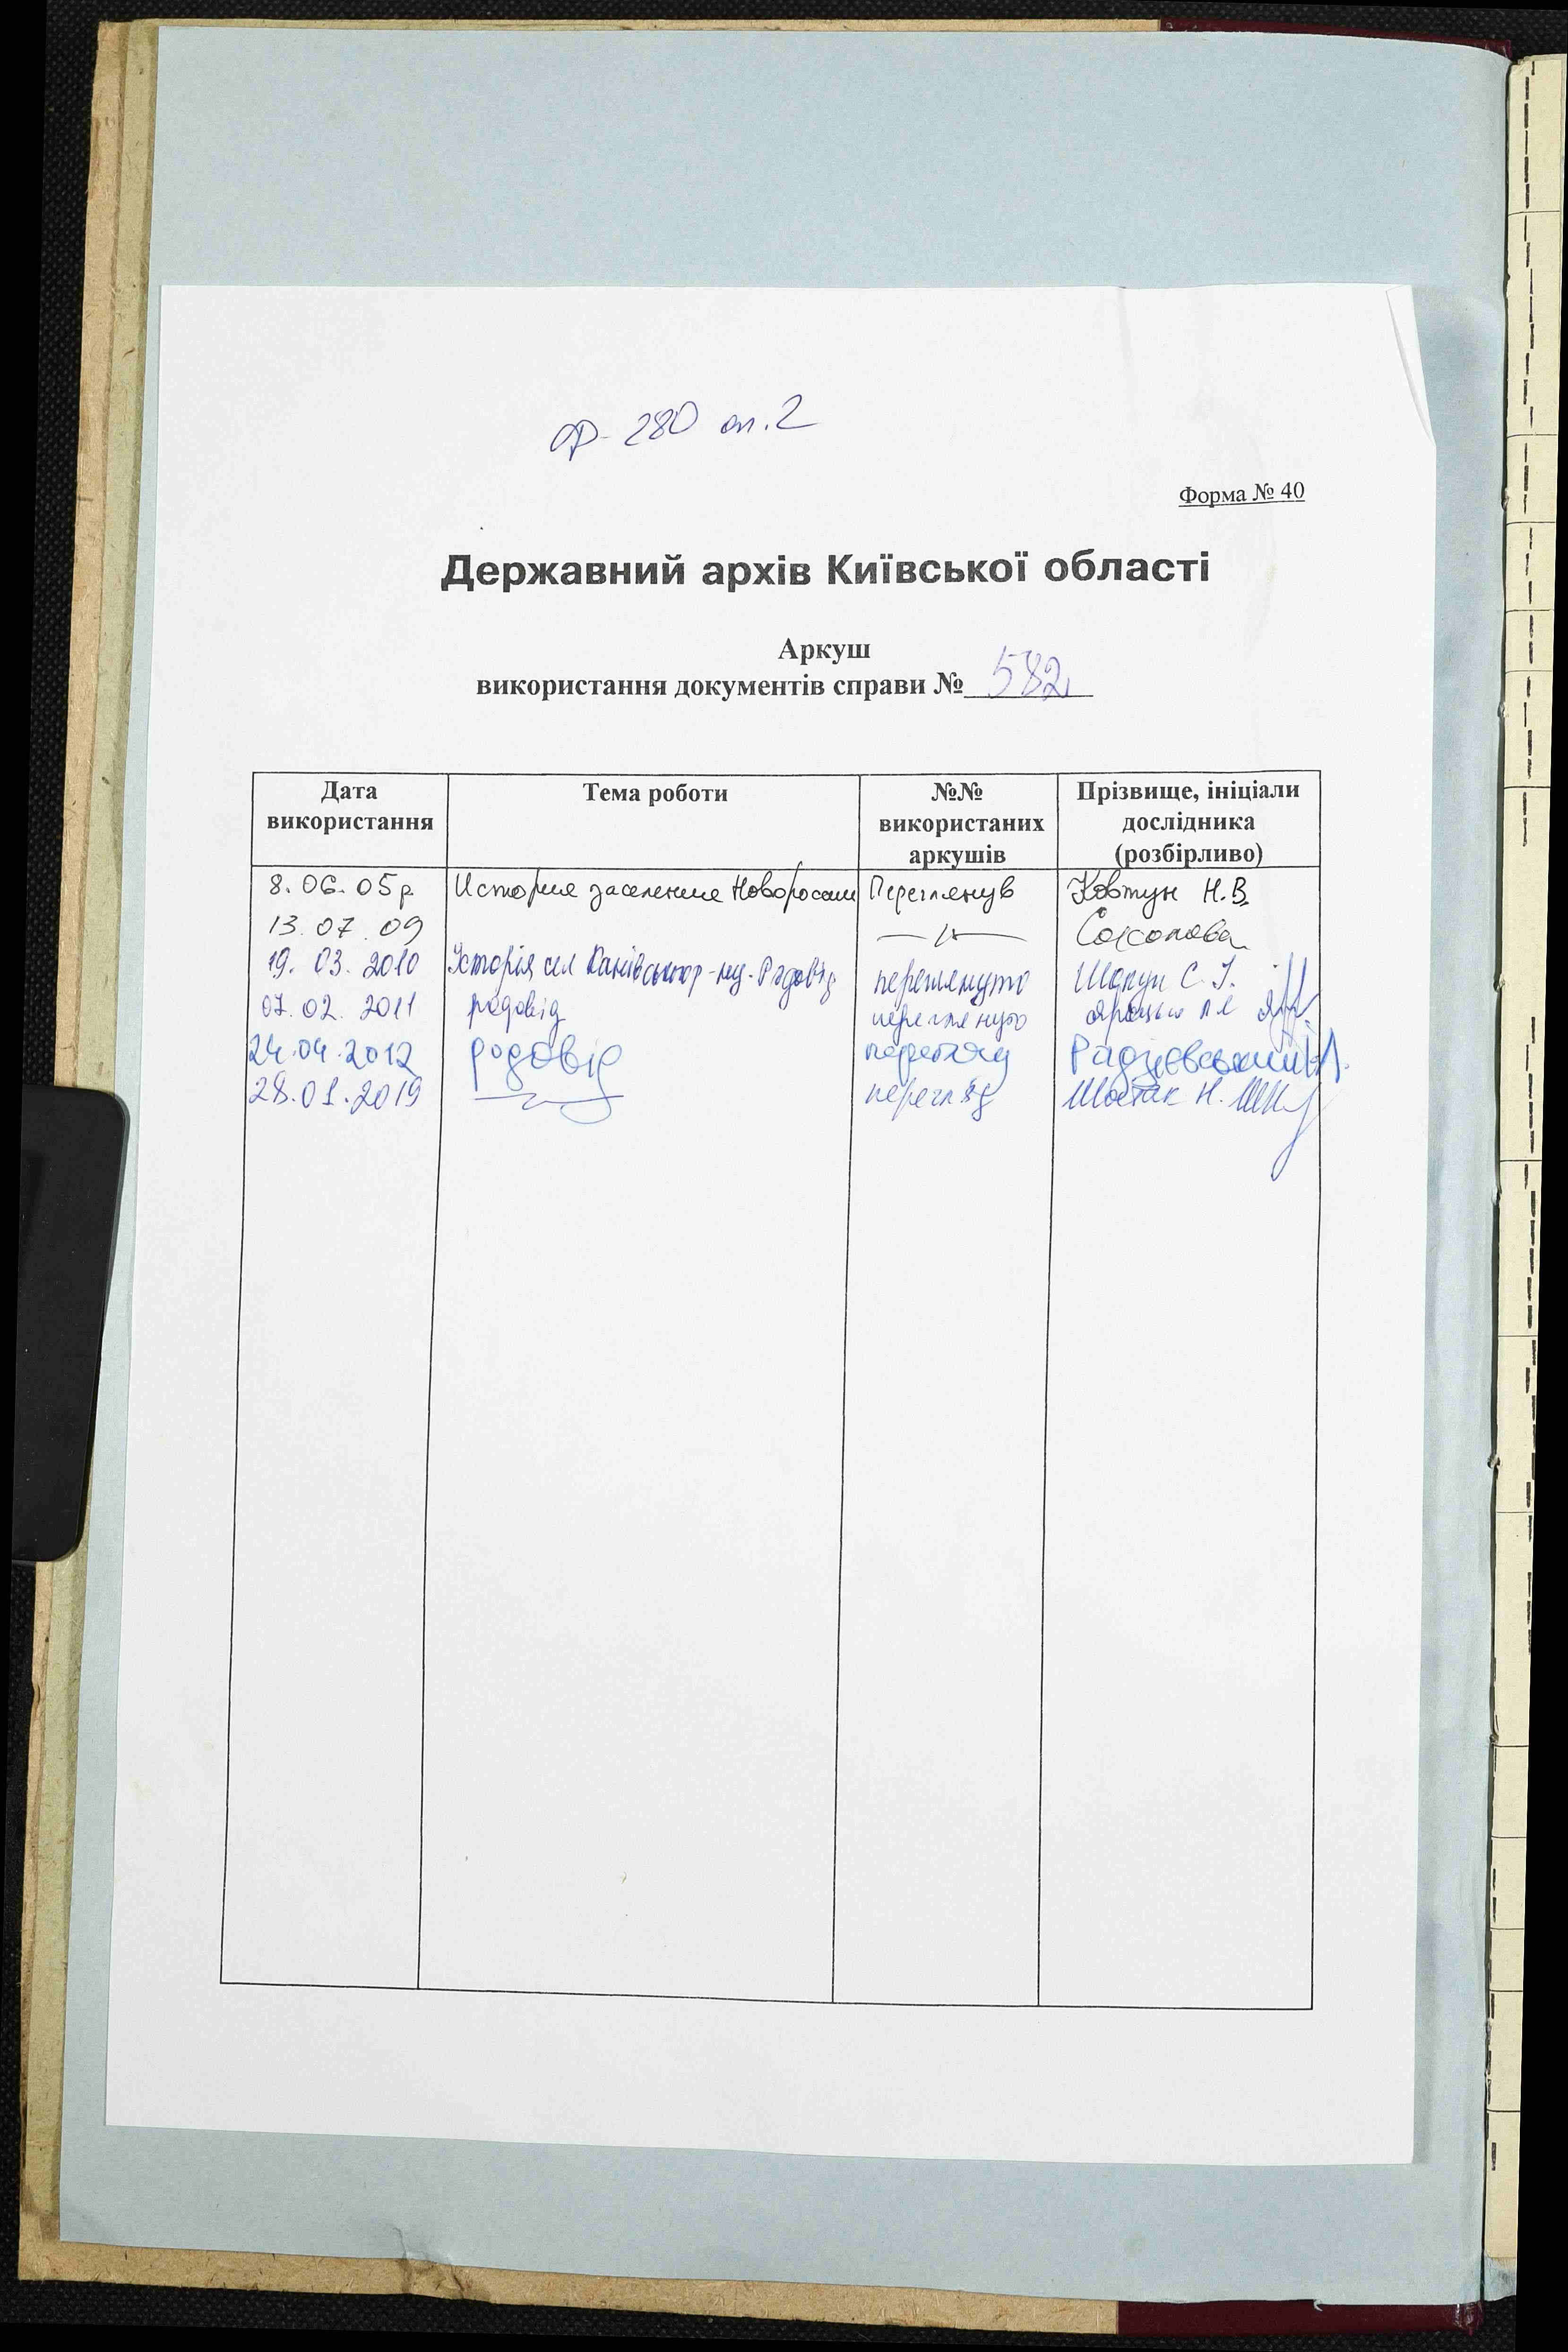 ф-280 оп.2
Форма № 40
Державний архів Київської області
Аркуш
використання документів справи № 582
Дата використання Тема роботи №№ використаних аркушів Прізвище, ініціали дослідника (розбірливо)
8.06.05р. История заселение Новоросии Переглянув Ковтун Н.В.
13.07.09 —〃—
19.03.2010 Історія сел Родовід переглянуто Шокун С.І.
07.02.2011 родовід переглянуто
24.04.2012 родовід перегляд Радзієвський
28.01.2019 перегляд Шостак Н.